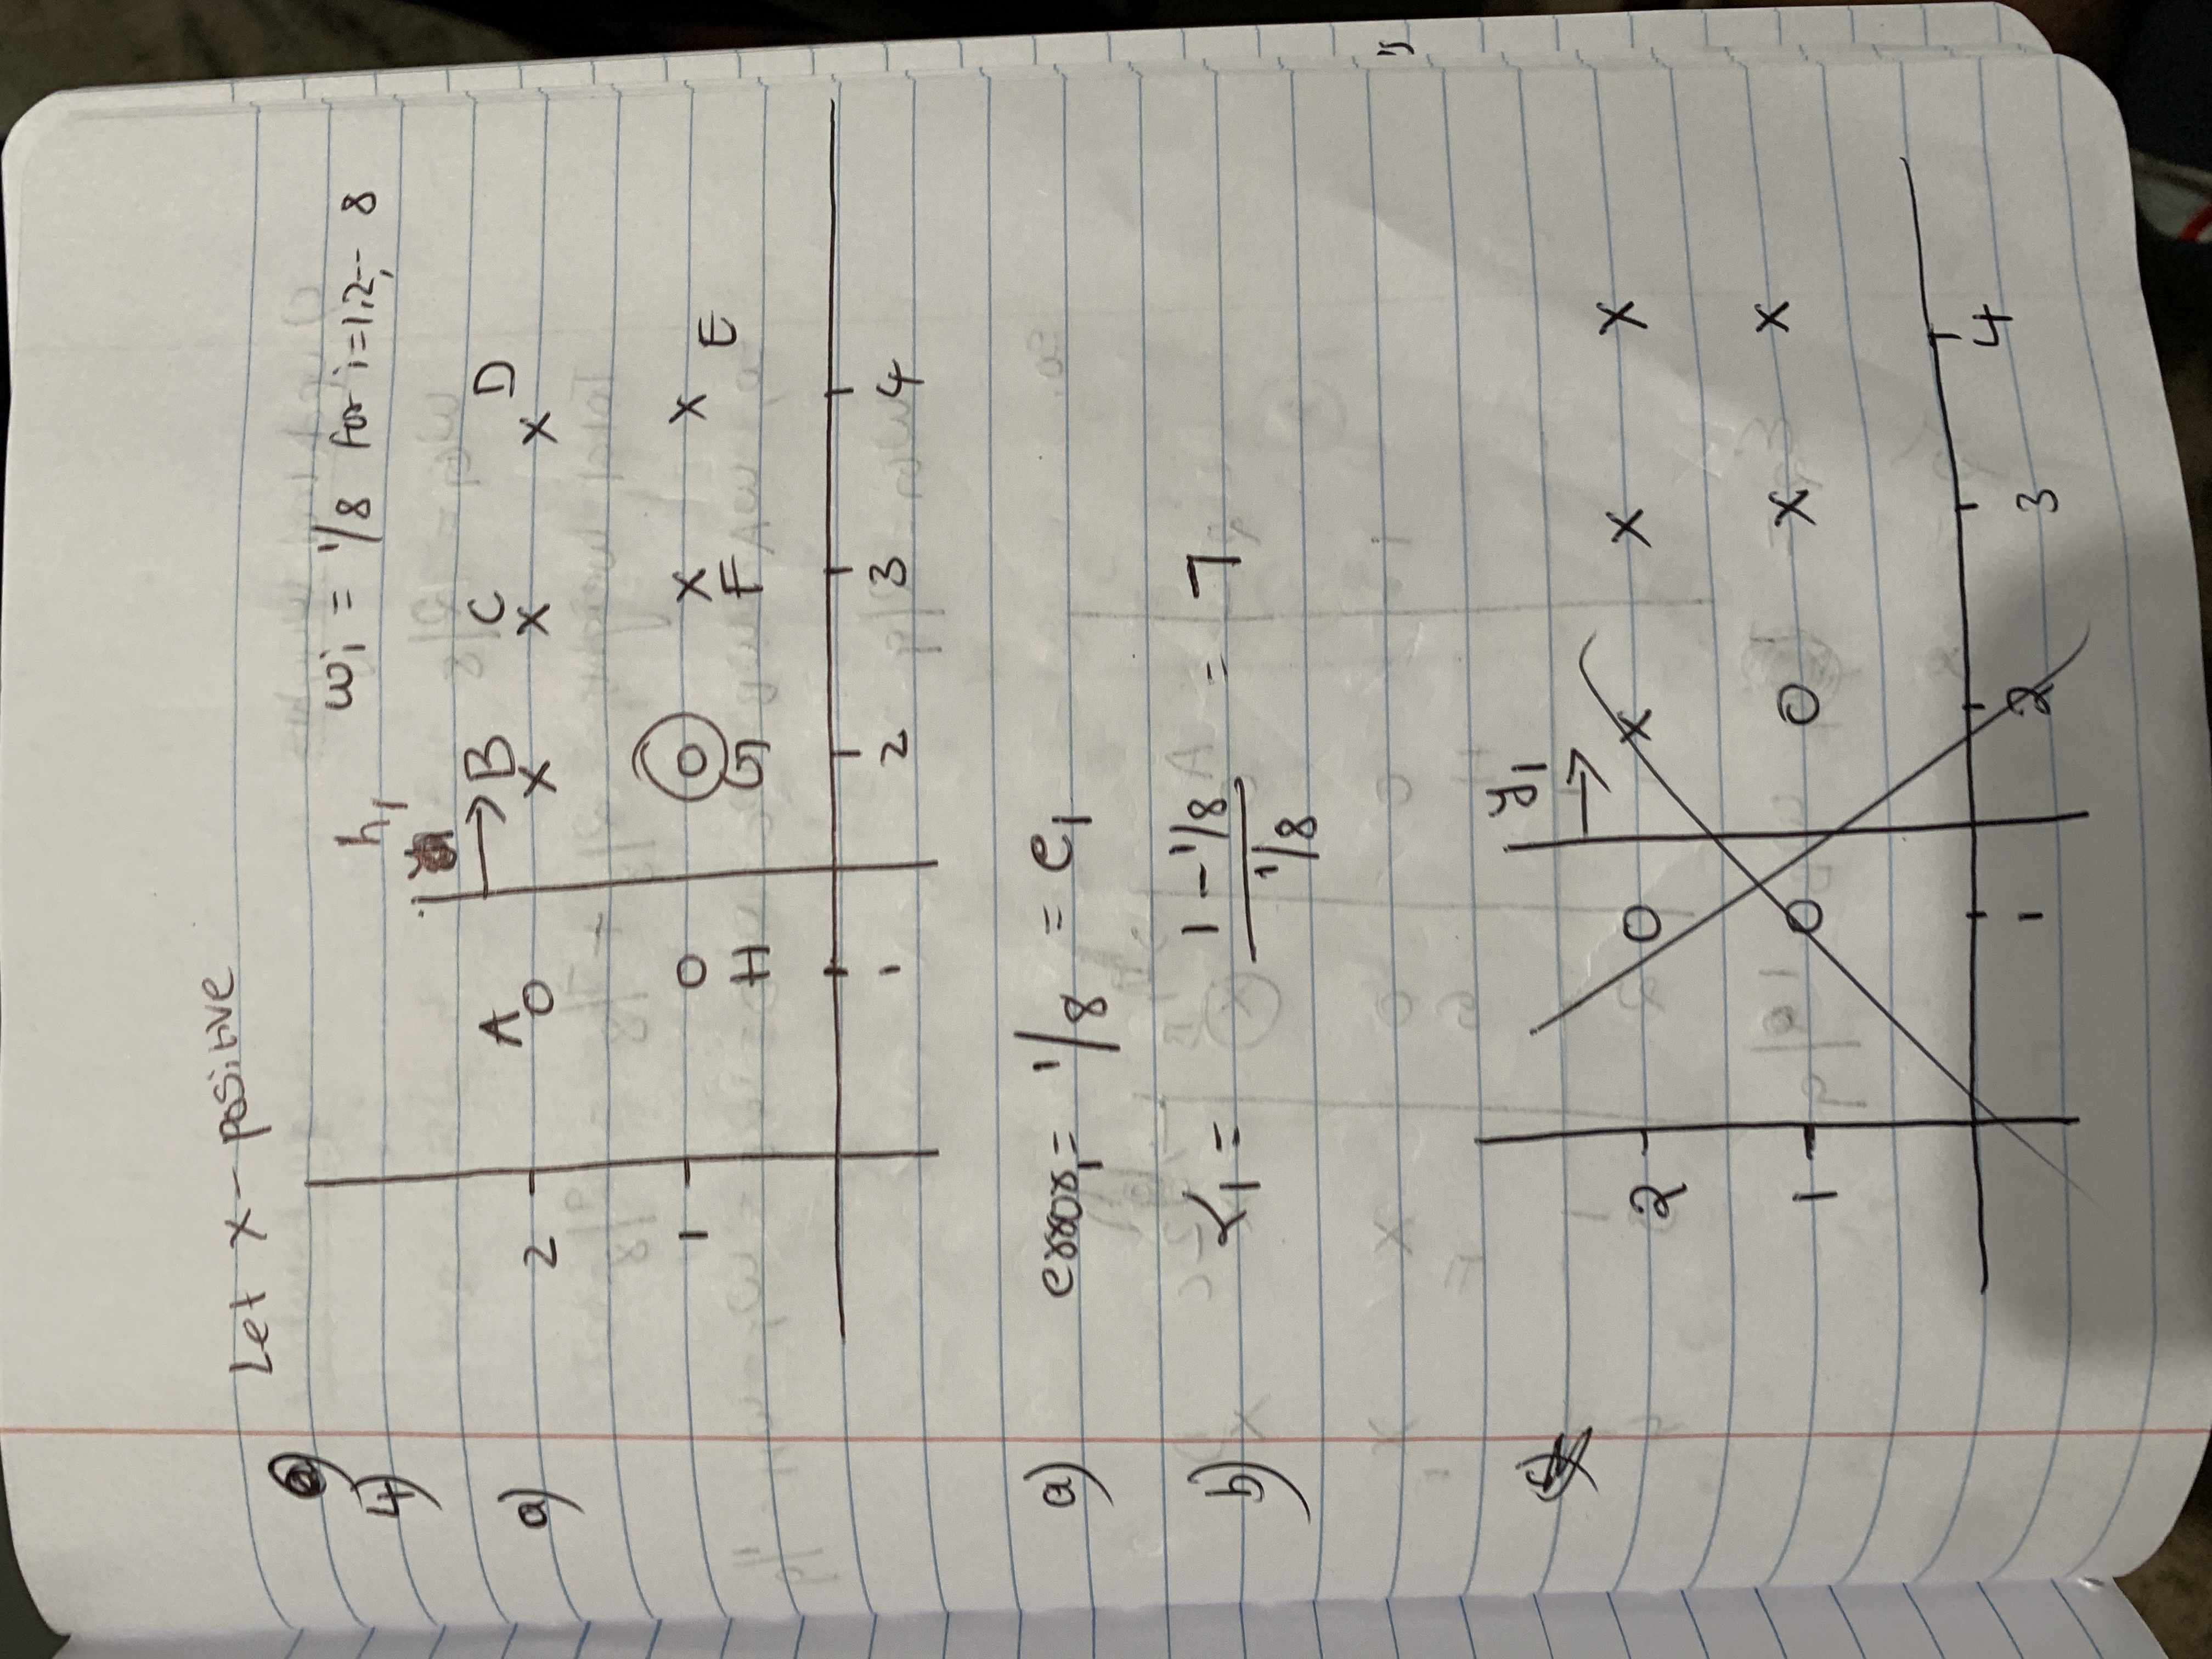 Let x - positive
a)
4)
h₁ wᵢ = 1/8 for i=1,2,-- 8
A B C D
a) 2 o x x x
1 o o x x E
H G F
1 2 3 4
a) error₁ = 1/8 = e₁
b) α₁ = (1 - 1/8) / (1/8) = 7
y₁
2 o x x x
1 o o x x
1 2 3 4